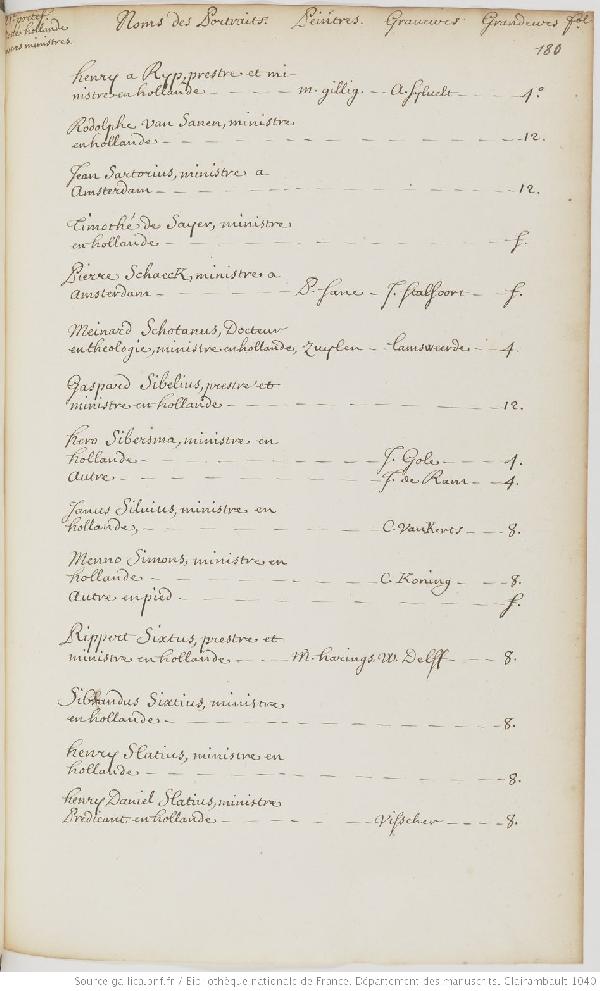 Noms des Portraits. Peintres. Graveurs Grandeurs fol.
de hollande
ministres
180
henry a Ryp, prestre et mi-
nistre en hollande - - - - m. gillig. - - A. - - - 4°
Rodolphe Van Sanen, ministre
en hollande - - - - - - 12.
Jean Sartorius, ministre a
Amsterdam - - - - - - 12.
Timothé de Sayer, ministre
en hollande - - - - - - f.
Pierre Schaeck, ministre a
Amsterdam - - - - P. - J. Stalfoort - - f.
Meinard Schotanus, Docteur
en theologie, ministre en hollande, Zuylen - - Lamsweerde - - 4.
Gaspard Sibelius, prestre et
ministre en hollande - - - - - - 12.
hero Sibersma, ministre en
hollande - - - - - - J. Gole - - - 4.
Autre - - - - - - J. de Ram - - 4.
Janus Silvius, ministre en
hollande, - - - - - - C. Van Kerts - - 8.
Menno Simons, ministre en
hollande - - - - - - C. Koning - - - 8.
Autre en pied - - - - - - f.
Rippert Sixtus, prestre et
ministre en hollande - - - M. harings. W. Delff - - - 8.
Sibrandus Sixtius, ministre
en hollande - - - - - - 8.
henry Slatius, ministre en
hollande - - - - - - 8.
henry Daniel Slatius, ministre
Predicant en hollande - - - - - Visscher - - - - 8.
Source gallica.bnf.fr / Bibliothèque nationale de France. Département des manuscrits. Clairambault 1040